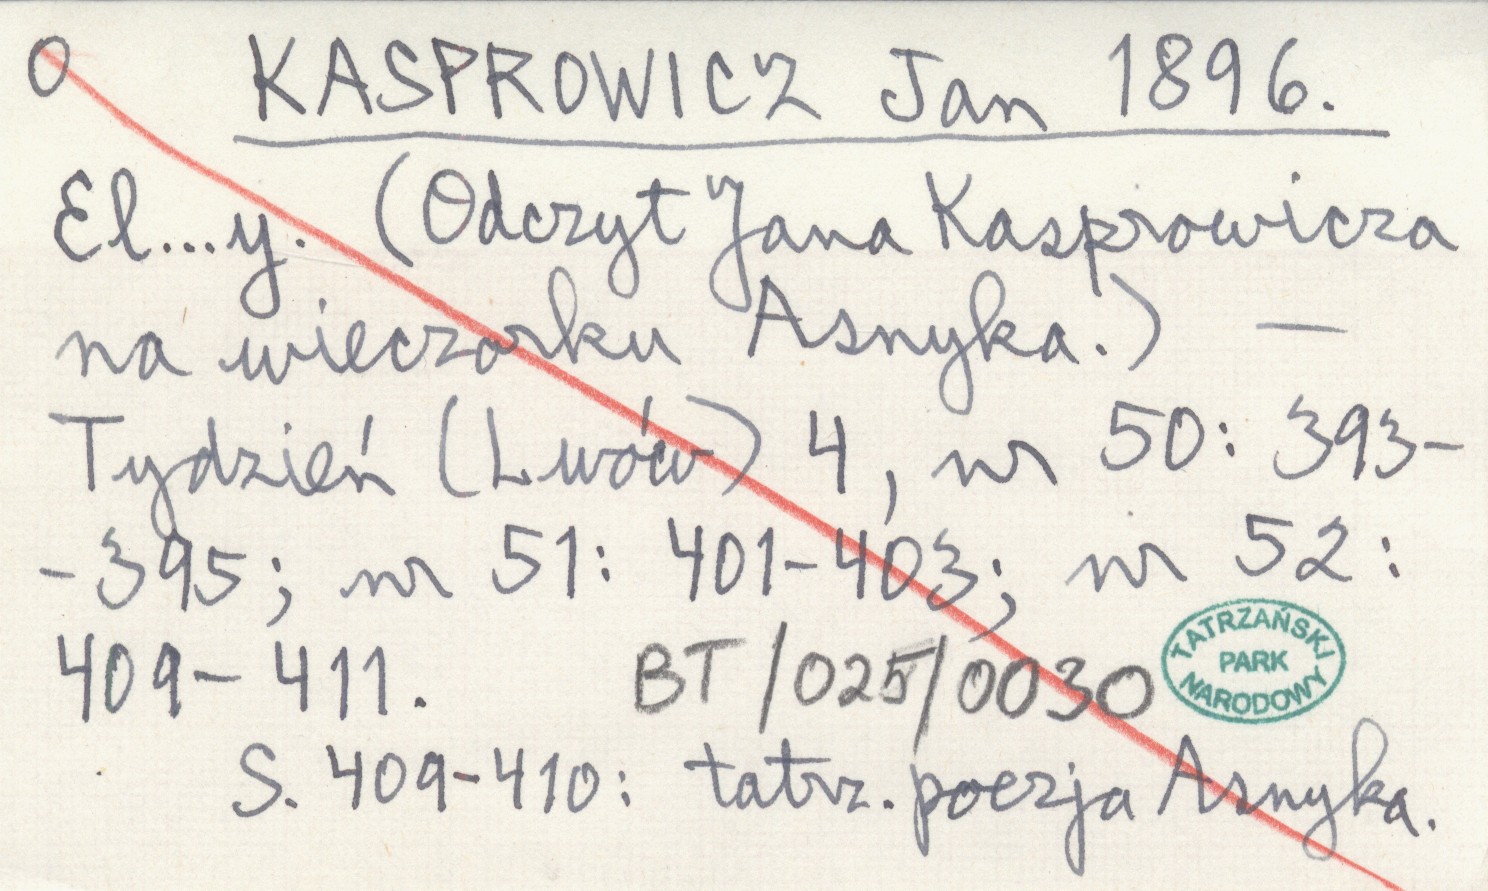 O KASPROWICZ Jan 1896.
El...y. (Odczyt Jana Kasprowicza
na wieczorku Asnyka.) —
Tydzień (Lwów) 4, nr 50: 393-
-395; nr 51: 401-403; nr 52:
409-411. BT/025/0030
TATRZAŃSKI
PARK
NARODOWY
S. 409-410: tatrz. poezja Asnyka.